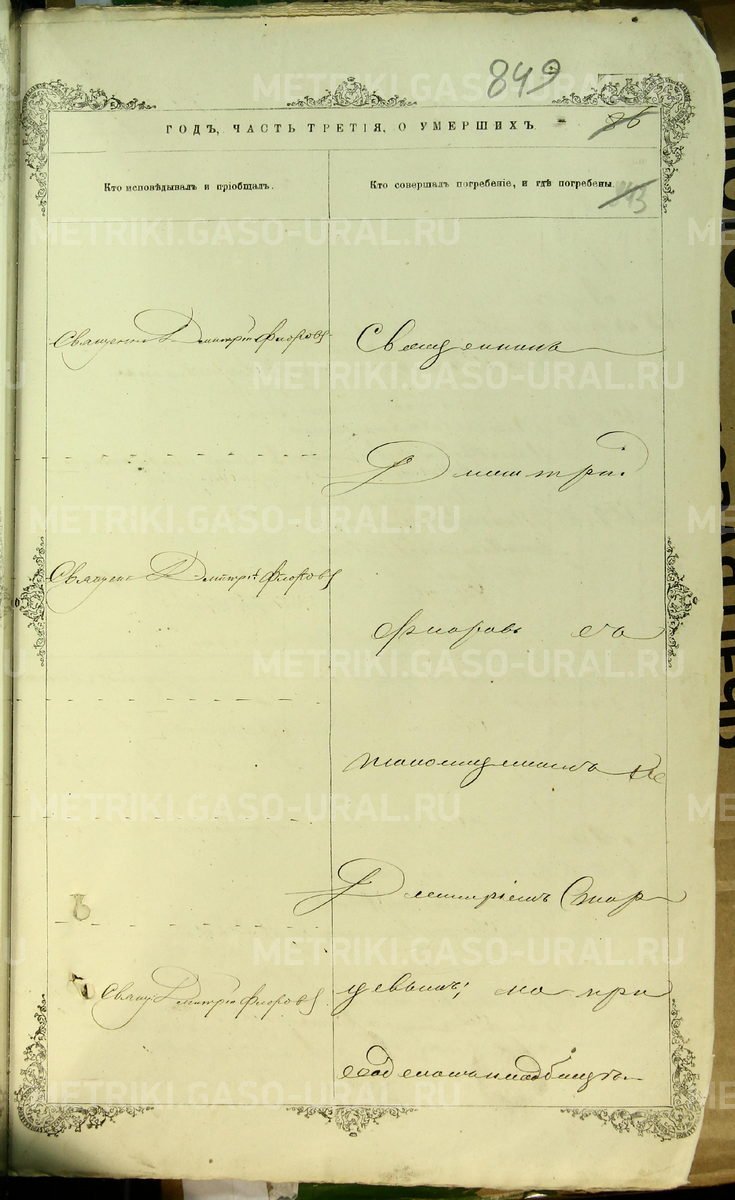 849
ГОДЪ, ЧАСТЬ ТРЕТІЯ, О УМЕРШИХЪ.
86
Кто исповѣдывалъ и пріобщалъ.
Кто совершалъ погребеніе, и гдѣ погребены.
METRIKI.GASO-URAL.RU
Священн Дмитрій Флоровъ
Священникъ
Дмитрій
Священ Дмитрій Флоровъ
Флоровъ съ
Дмитріемъ Стар
Свящ Дмитрій Флоровъ
цевымъ; на при
ходскомъ кладбищѣ